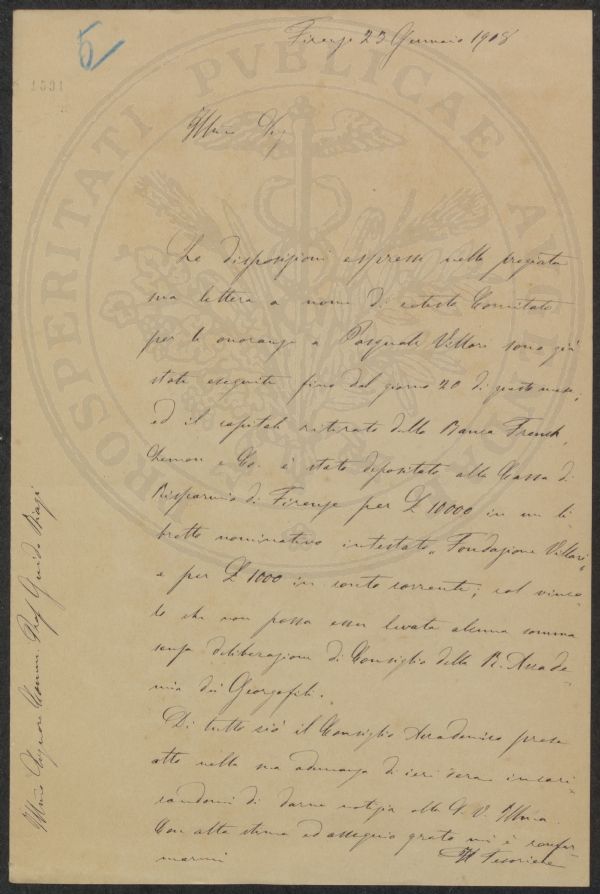 5
1591
PROSPERITATI PVBLICAE AVGENDAE
Firenze 23 Gennaio 1908
Illmo Sig.
Le disposizioni espresse nella pregiata
sua lettera a nome di cotesto Comitato
per le onoranze a Pasquale Villari sono già
state eseguite fino dal giorno 20 di questo mese,
ed il capitale ritirato dalla Banca French,
Lemon e Co. è stato depositato alla Cassa di
Risparmio di Firenze per £ 10000 in un li-
bretto nominativo intestato "Fondazione Villari"
e per £ 1000 in conto corrente; col vinco-
lo che non possa esser levata alcuna somma
senza deliberazione di Consiglio della R. Accade-
mia dei Georgofili.
Di tutto ciò il Consiglio Accademico prese
atto nella sua adunanza di ieri sera incari-
candomi di darne notizia alla S. V. Illma.
Con alta stima ed ossequio grato mi è confer-
marmi
Il Tesoriere
Illmo Signore Comm. Prof. Guido Biagi